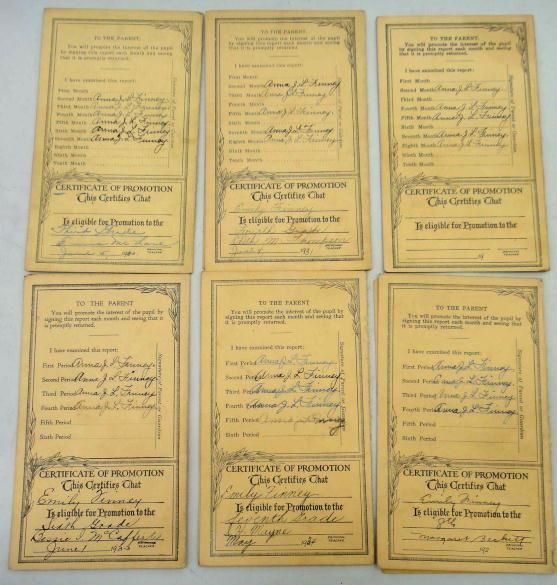 TO THE PARENT
You will promote the interest of the pupil
by signing this report each month and seeing
that it is promptly returned.
I have examined this report:
First Month
Second Month Anna J. L. Finney
Third Month Anna J. L. Finney
Fourth Month Anna J. L. Finney
Fifth Month Anna J. L. Finney
Sixth Month Anna J. L. Finney
Seventh Month Anna J. L. Finney
Eighth Month
Ninth Month
Tenth Month
CERTIFICATE OF PROMOTION
This Certifies That
Is eligible for Promotion to the
Third Grade
June 5, 1930
TO THE PARENT
You will promote the interest of the pupil
by signing this report each month and seeing
that it is promptly returned.
I have examined this report:
First Month
Second Month Anna J. L. Finney
Third Month Anna J. L. Finney
Fourth Month
Fifth Month Anna J. L. Finney
Sixth Month
Seventh Month Anna J. L. Finney
Eighth Month Anna J. L. Finney
Ninth Month
Tenth Month
CERTIFICATE OF PROMOTION
This Certifies That
Emily Finney
Is eligible for Promotion to the
Fourth Grade
M. Thompson
June 1931
TO THE PARENT
You will promote the interest of the pupil
by signing this report each month and seeing
that it is promptly returned.
I have examined this report:
First Month
Second Month Anna J. L. Finney
Third Month
Fourth Month Anna J. L. Finney
Fifth Month Anna J. L. Finney
Sixth Month
Seventh Month Anna J. L. Finney
Eighth Month Anna J. L. Finney
Ninth Month
Tenth Month
CERTIFICATE OF PROMOTION
This Certifies That
Is eligible for Promotion to the
19
TO THE PARENT
You will promote the interest of the pupil
by signing this report each month and seeing
that it is promptly returned.
I have examined this report:
First Period Anna J. L. Finney
Second Period Anna J. L. Finney
Third Period Anna J. L. Finney
Fourth Period Anna J. L. Finney
Fifth Period
Sixth Period
Signature of Parent or Guardian
CERTIFICATE OF PROMOTION
This Certifies That
Emily Finney
Is eligible for Promotion to the
Sixth Grade
Bessie I. McCafferty
June 1 1933
TEACHER
TO THE PARENT
You will promote the interest of the pupil
by signing this report each month and seeing that
it is promptly returned.
I have examined this report:
First Period Anna J. L. Finney
Second Period Anna J. L. Finney
Third Period Anna J. L. Finney
Fourth Period Anna J. L. Finney
Fifth Period Anna J. L. Finney
Sixth Period
Signature of Parent or Guardian
CERTIFICATE OF PROMOTION
This Certifies That
Emily Finney
Is eligible for Promotion to the
Seventh Grade
Wayne
May 1934
TEACHER
TO THE PARENT
You will promote the interest of the pupil by
signing this report each month and seeing that it
is promptly returned.
I have examined this report:
First Period Anna J. L. Finney
Second Period Anna J. L. Finney
Third Period Anna J. L. Finney
Fourth Period Anna J. L. Finney
Fifth Period
Sixth Period
Signature of Parent or Guardian
CERTIFICATE OF PROMOTION
This Certifies That
Emily Finney
Is eligible for Promotion to the
8th
Margaret Beckett
193
TEACHER